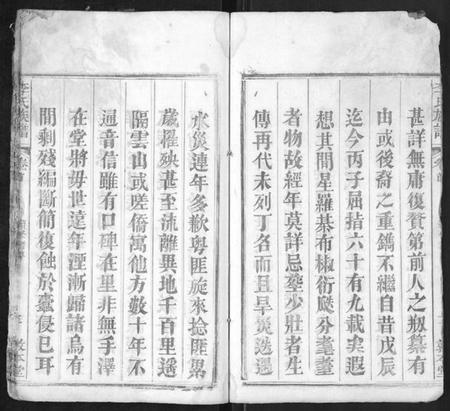 甚詳無庸復贅第前人之剏纂有
由或後裔之重鐫不繼自昔戊辰
迄今丙子屈指六十有九載矣遐
想其間星羅碁布椒衍颷分耄耋
者物故經年莫詳忌塟少壯者生
傳再代未列丁名而且旱災迭遇
水災連年多歉粤匪旋來捻匪累
歲摧殃甚至流離異地千百里遥
隔雲山或嗟僑寓他方數十年不
通音信雖有口碑在里非無手澤
在堂將毋世遠年湮漸歸諸烏有
間剩殘編斷簡復蝕於蠹侵已耳
李氏族譜
卷首
敦本堂